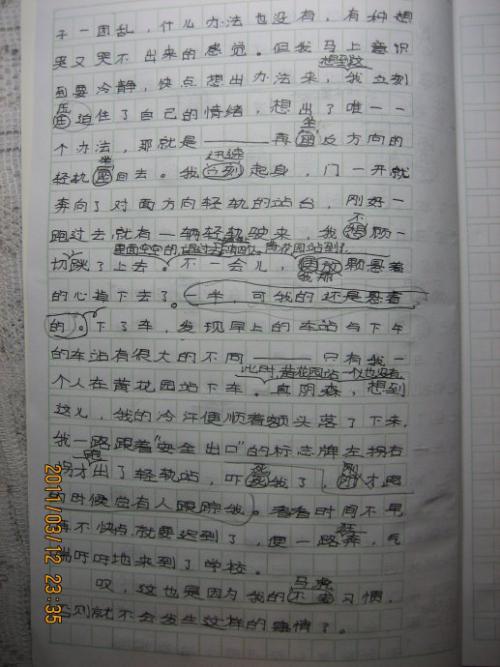 子一团乱，什么办法也没有，有种想
哭又哭不出来的感觉。但我马上意识
到要冷静，快点想出办法来，我立刻
想到这
压迫住了自己的情绪，想出了唯一一
个办法，那就是——再座反方向的
坐
轻轨座回去。我立刻起身，门一开就
坐 迅速
奔向了对面方向轻轨的站台，刚好一
跑过去就有一辆轻轨驶来，我想顾一
不
切跳了上去。不一会儿，颗悬着
黄花园站到了。
的心掉下去了。一半，可我的还是悬着
的。下了车，发现早上的车站与下午
的车站有很大的不同——只有我一
个人在黄花园站下车。真阴森，想到
此时，黄花园站一个人也没有。
这儿，我的冷汗便顺着额头落了下来，
我一路跟着"安全出口"的标志牌左拐右
拐才出了轻轨站，吓死我了，刚才跑
跑
的时候总有人跟踪我。看看时间不早，
再不快点就要迟到了，便一路奔，气
喘吁吁地来到了学校。
哎，这也是因为我的习惯，
马虎
否则就不会发生这样的事情了。
2011/03/12 23:35